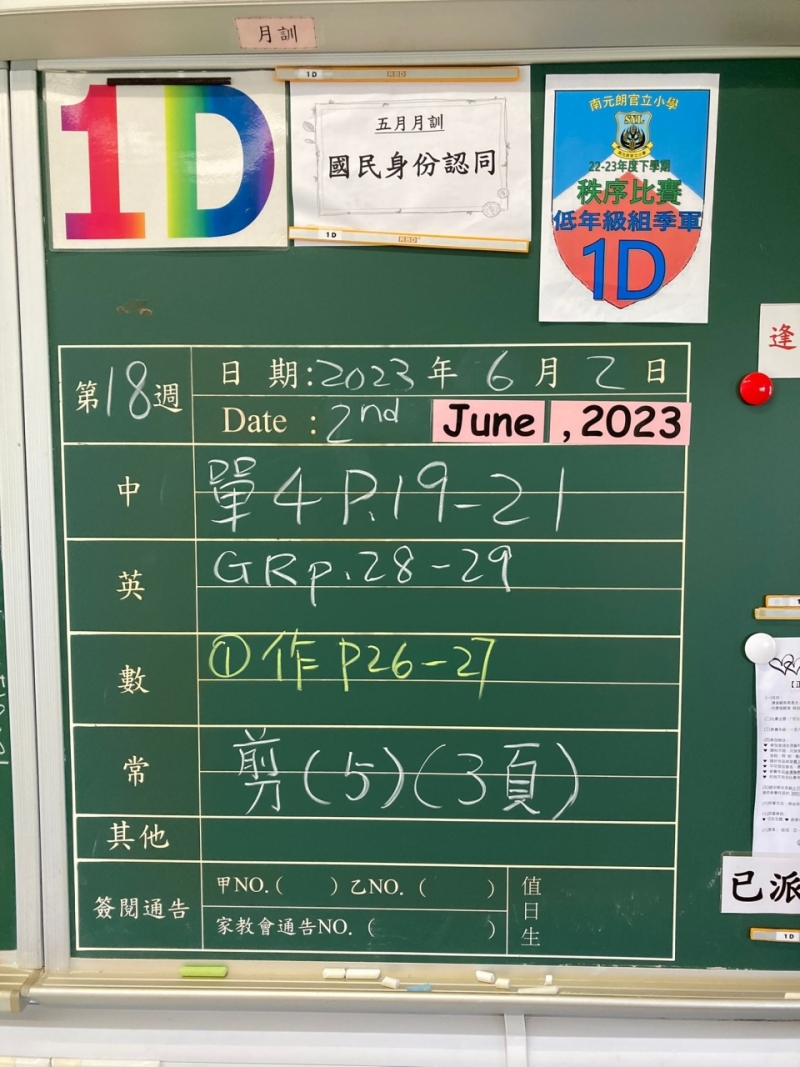 月訓
1D
1D
五月月訓
國民身份認同
1D
南元朗官立小學
22-23年度下學期
秩序比賽
低年級組季軍
1D
逢
第18週
日期:2023年6月2日
Date : 2nd June , 2023
中 單4 P.19-21
英 GR p.28-29
數 ①作 P26-27
常 剪(5)(3頁)
其他
簽閱通告 甲NO.( ) 乙NO. ( )
家教會通告NO. ( )
值日生
已派
1D